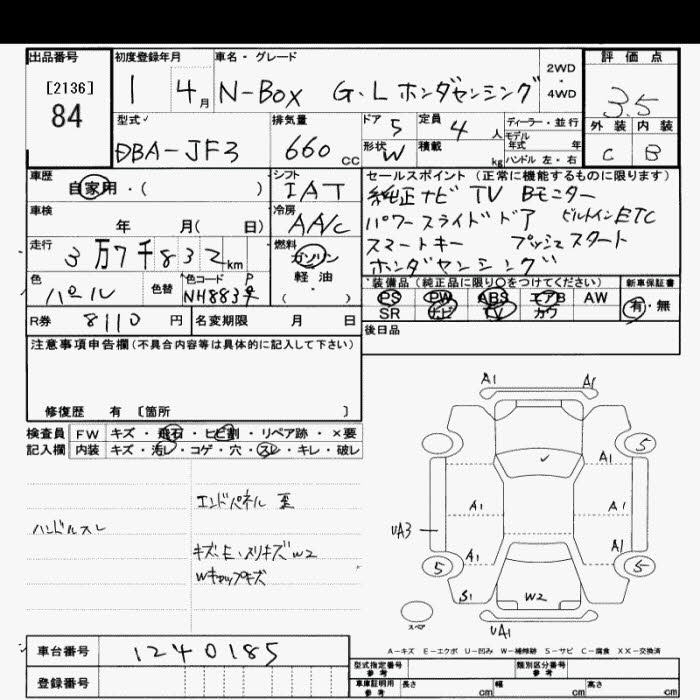 出品番号
[2136]
84
初度登録年月
1 4月
車名・グレード
N-Box G・L ホンダセンシング
2WD
・
4WD
評価点
3.5
外装 内装
C B
型式
DBA-JF3
排気量
660 cc
ドア 5
定員 4 人
形状 W
積載 kg
ディーラー・並行
モデル
年式 年
ハンドル 左・右
車歴
自家用・( )
シフト
IAT
車検
年 月( 日)
冷房
AA/C
走行
3万7千832km
燃料
ガソリン
軽・油
・( )
色
パール
色替
色コード
NH883P
R券 8110 円
名変期限 月 日
セールスポイント (正常に機能するものに限ります)
純正ナビ TV Bモニター
パワースライドドア ビルトインETC
スマートキー プッシュスタート
ホンダセンシング
装備品(純正品に限り○をつけてください)
PS PW ABS エアB AW
SR ナビ TV カワ
新車保証書
有・無
後日品
注意事項申告欄(不具合内容等は具体的に記入して下さい)
修復歴 有 [箇所 ]
検査員
記入欄
FW キズ・飛石・ヒビ割・リペア跡・×要
内装 キズ・汚レ・コゲ・穴・スレ・キレ・破レ
ハンドルスレ
エンドパネル 歪
キズ・E・スリキズW2
Wキャップキズ
A1 A1
5
A1
A1 A1
UA3
A1 A1
5 5
S1
W2
UA1
スペア
A-キズ E-エクボ U-凹み W-補修跡 S-サビ C-腐食 XX-交換済
車台番号 1240185
登録番号
型式指定番号
参考
類別区分番号
参考
車庫証明用
参考
長さ cm 幅 cm 高さ cm